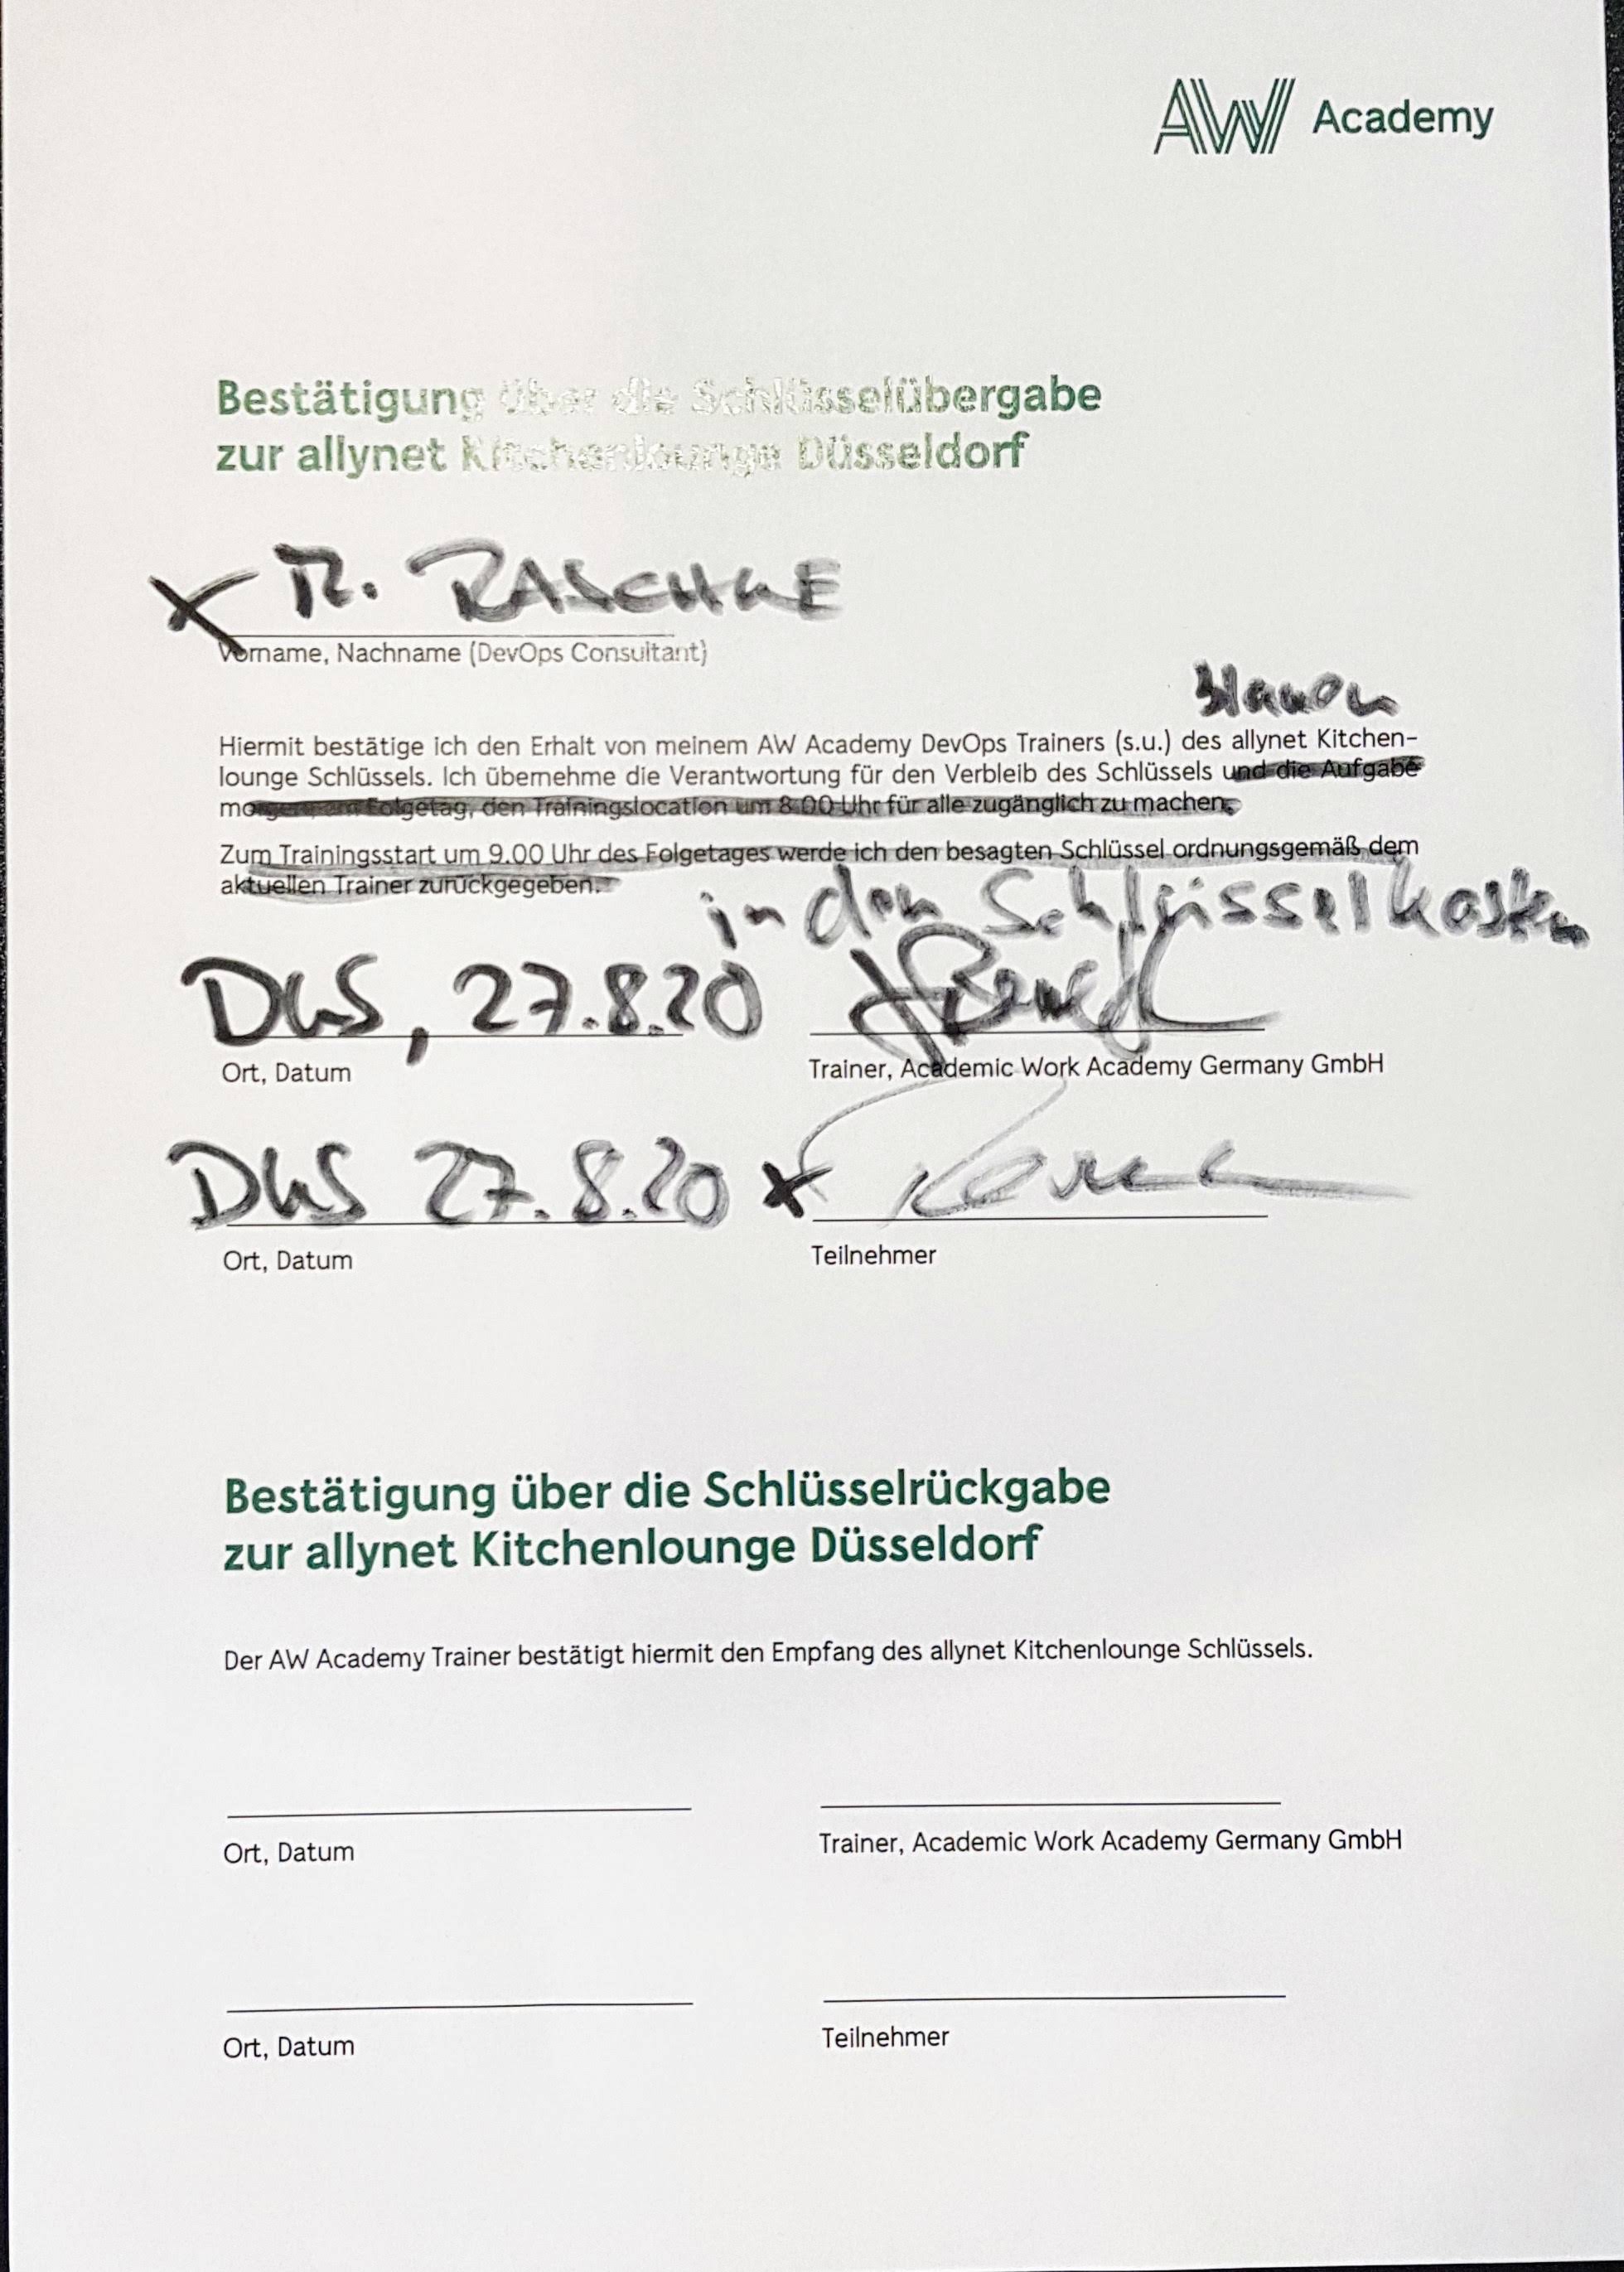 AW Academy
Bestätigung über die Schlüsselübergabe
zur allynet Kitchenlounge Düsseldorf
x R. RASCHKE
Vorname, Nachname (DevOps Consultant)
blauen
Hiermit bestätige ich den Erhalt von meinem AW Academy DevOps Trainers (s.u.) des allynet Kitchen-
lounge Schlüssels. Ich übernehme die Verantwortung für den Verbleib des Schlüssels und die Aufgabe
morgen am Folgetag, den Trainingslocation um 8.00 Uhr für alle zugänglich zu machen.
Zum Trainingsstart um 9.00 Uhr des Folgetages werde ich den besagten Schlüssel ordnungsgemäß dem
aktuellen Trainer zurückgegeben.
in den Schlüsselkasten
DUS, 27.8.20
Ort, Datum
Trainer, Academic Work Academy Germany GmbH
DUS 27.8.20 x
Ort, Datum
Teilnehmer
Bestätigung über die Schlüsselrückgabe
zur allynet Kitchenlounge Düsseldorf
Der AW Academy Trainer bestätigt hiermit den Empfang des allynet Kitchenlounge Schlüssels.
Ort, Datum
Trainer, Academic Work Academy Germany GmbH
Ort, Datum
Teilnehmer